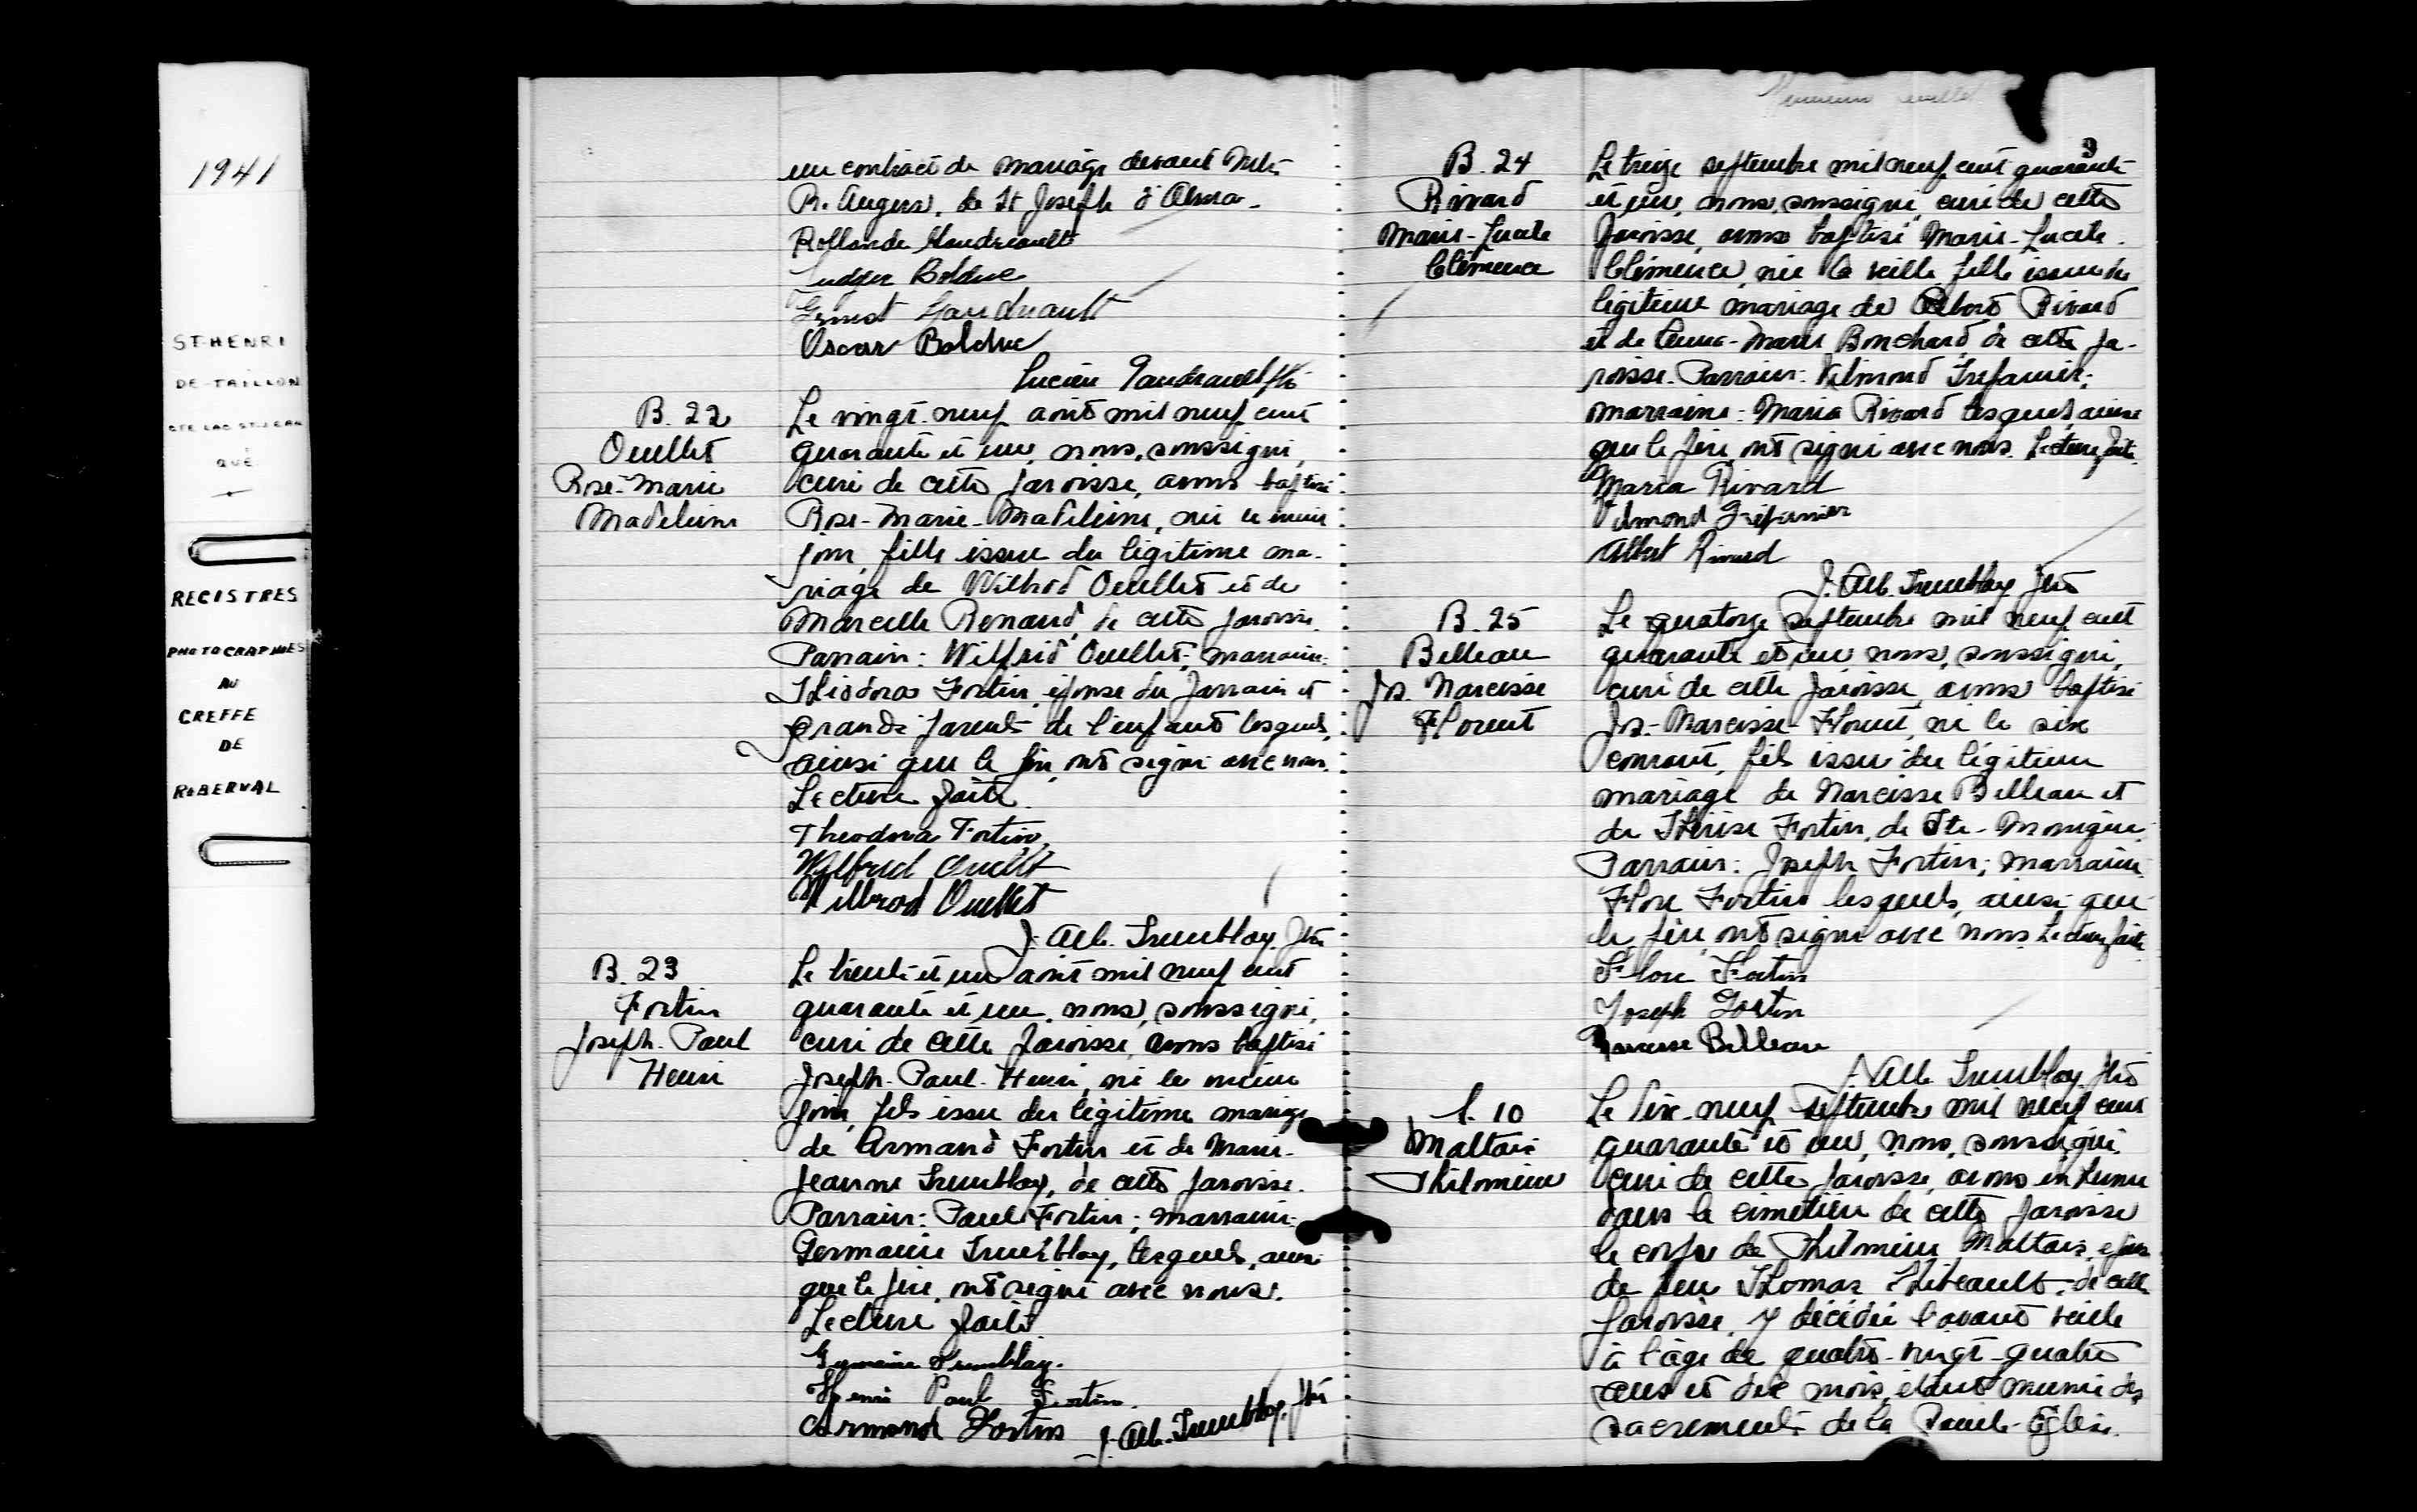 1941
ST-HENRI
DE-TAILLON
CTE LAC ST-JEAN
QUÉ.
REGISTRES
PHOTOGRAPHIÉS
AU
GREFFE
DE
ROBERVAL
un contract de mariage devant Mtre
R. Angers, de St Joseph d'Alma.
Rollande Gaudreault
Ludger Bolduc
Ernest Gaudreault
Oscar Bolduc
Lucien Gaudreault ptre
B. 22
Ouellet
Rose-Marie
Madeleine
Le vingt-neuf août mil neuf cent
quarante et un, nous, soussigné,
curé de cette paroisse, avons baptisé
Rose-Marie-Madeleine, née le même
jour, fille issue du légitime ma-
riage de Wilbrod Ouellet et de
Marcelle Renaud, de cette paroisse.
Parrain: Wilfrid Ouellet; marraine:
Théodora Fortin, épouse du parrain et
grands-parents de l'enfant lesquels,
ainsi que le père, ont signé avec nous.
Lecture faite.
Theodora Fortin
Wilfrid Ouellet
Wilbrod Ouellet
J. Alb. Tremblay, ptre
B. 23
Fortin
Joseph-Paul
Henri
Le trente et un août mil neuf cent
quarante et un, nous, soussigné,
curé de cette paroisse, avons baptisé
Joseph-Paul-Henri, né le même
jour, fils issu du légitime mariage
de Armand Fortin et de Marie-
Jeanne Tremblay, de cette paroisse.
Parrain: Paul Fortin; marraine:
Germaine Tremblay, lesquels, ainsi
que le père, ont signé avec nous.
Lecture faite.
Germaine Tremblay.
Henri Paul Fortin.
Armand Fortin J. Alb. Tremblay, ptre
9
B. 24
Rivard
Marie-Lucete
Clémence
Le treize septembre mil neuf cent quarante
et un, nous, soussigné, curé de cette
paroisse, avons baptisé Marie-Lucete
Clémence, née la veille, fille issue du
légitime mariage de Albert Rivard
et de Anna-Marie Bouchard de cette pa-
roisse. Parrain: Vilmond Trépanier;
marraine: Maria Rivard lesquels, ainsi
que le père, ont signé avec nous. Lecture faite.
Maria Rivard
Vilmond Trépanier
Albert Rivard
J. Alb. Tremblay ptre
B. 25
Belleau
Js. Narcisse
Florent
Le quatorze septembre mil neuf cent
quarante et un, nous, soussigné,
curé de cette paroisse, avons baptisé
Js.-Narcisse-Florent, né le six
courant, fils issu du légitime
mariage de Narcisse Belleau et
de Thérèse Fortin, de Ste-Monique.
Parrain: Joseph Fortin; marraine
Flore Fortin lesquels, ainsi que
le père, ont signé avec nous. Lecture faite.
Flore Fortin
Joseph Fortin
Narcisse Belleau
J. Alb. Tremblay, ptre
S. 10
Maltais
Philomène
Le dix-neuf septembre mil neuf cent
quarante et un, nous, soussigné
curé de cette paroisse, avons inhumé
dans le cimetière de cette paroisse
le corps de Philomène Maltais, épouse
de feu Thomas Thibeault, de cette
paroisse, y décédée l'avant veille
à l'âge de quatre-vingt-quatre
ans et dix mois, étant munie des
sacrements de la Sainte-Église.